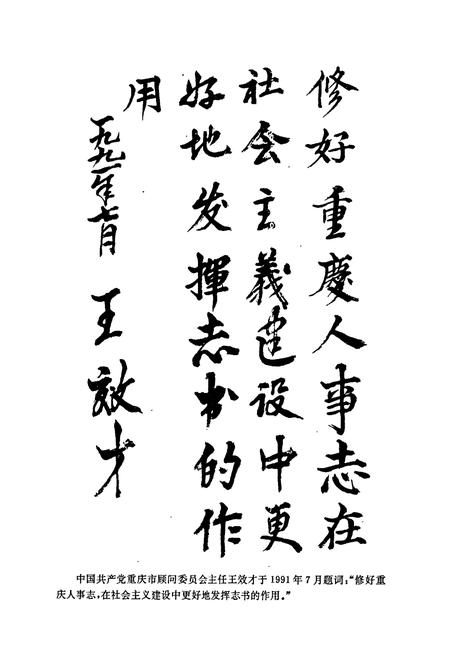 修好重慶人事志在
社会主義建设中更
好地发揮志书的作
用
一九九一年七月
王效才
中国共产党重庆市顾问委员会主任王效才于1991年7月题词：“修好重
庆人事志，在社会主义建设中更好地发挥志书的作用。”